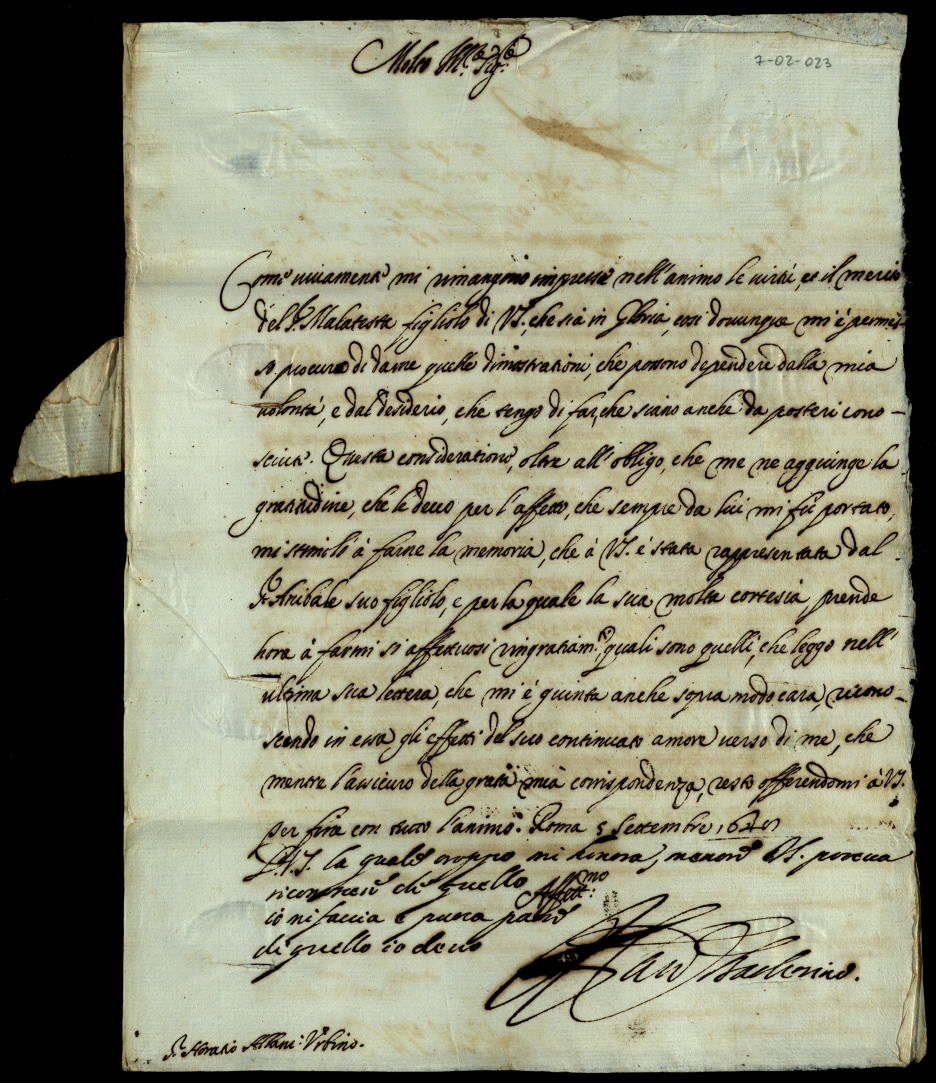 Molto Ill.re Sig.re
7-02-023
Come uiuamente mi rimangono impresse nell'animo le uirtù, et il merito
del S.r Malatesta figliolo di VS. che sia in Gloria, cosi dounque mi è permes-
so, procuro di darne quelle dimostrationi, che possono dependere dalla mia
uolontà, e dal desiderio, che tengo di far, che siano anche da posteri cono-
sciute. Questa consideratione, oltre all'obligo, che me ne aggiunge la
gratitudine, che le deuo per l'affetto, che sempre da lui mi fù portato,
mi stimolò à farne la memoria, che à VS. è stata rappresentata dal
S.r Anibale suo figliolo, e per la quale la sua molta cortesia, prende
hora à farmi si affettuosi ringratiam.ti, quali sono quelli, che leggo nell'
ultima sua lettera, che mi è giunta anche sopra modo cara, ricono-
scendo in essa, gli effetti del suo continuato amore uerso di me, che
mentre l'assicuro della grata mia corrispondenza, resto offerendomi à VS.
per fine con tutto l'animo. Roma 5 Settembre
D. VS. la quale troppo mi honora, mentre VS. poteua
di quello
Affett.mo
io ni faccia e
di quello io deuo
Barberino.
S.r Horatio Albani: Vrbino.